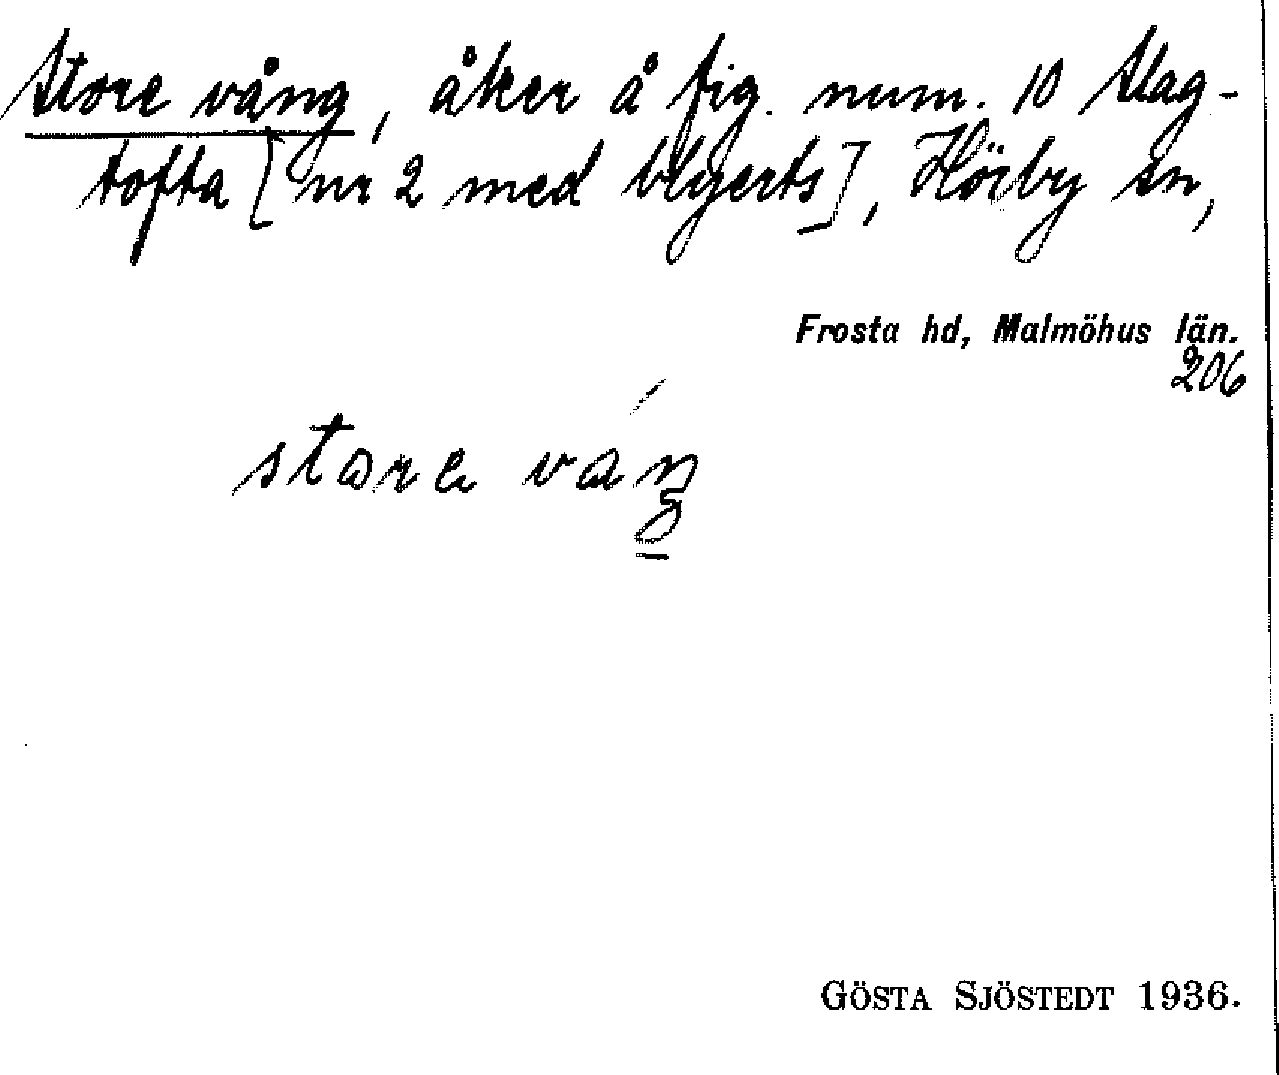 Store vång, åker å fig. num. 10 Slag-
tofta [nr 2 med blyerts], Hörby sn,
Frosta hd, Malmöhus län.
206
store vaŋ
GÖSTA SJÖSTEDT 1936.